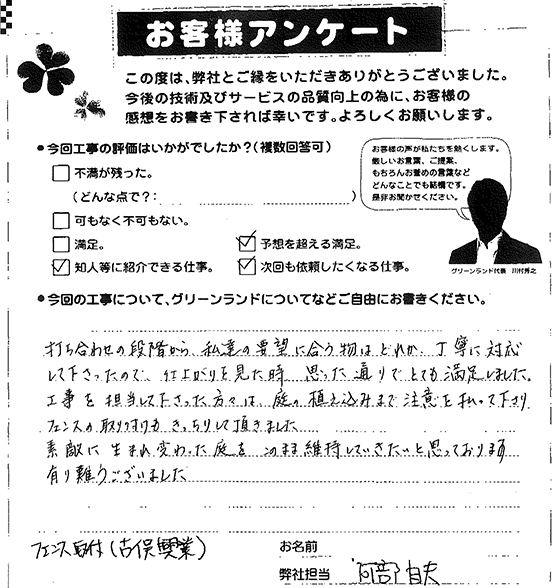 お客様アンケート
この度は、弊社とご縁をいただきありがとうございました。
今後の技術及びサービスの品質向上の為に、お客様の
感想をお書き下されば幸いです。よろしくお願いします。
●今回工事の評価はいかがでしたか?(複数回答可)
不満が残った。
(どんな点で?: )
可もなく不可もない。
満足。
予想を超える満足。
知人等に紹介できる仕事。
次回も依頼したくなる仕事。
お客様の声が私たちを動くします。
厳しいお言葉、ご提案、
もちろんお誉めの言葉など
どんなことでも結構です。
是非お聞かせください。
グリーンランド代表 川村秀之
●今回の工事について、グリーンランドについてなどご自由にお書きください。
打ち合わせの段階から、私達の要望に合う物はどれか、丁寧に対応
して下さったので、仕上がりを見た時、思った通りでとても満足しました。
工事を担当して下さった方々は、庭の植え込みまで注意を払って下さり
フェンスの取り付けも きっちりして頂きました
素敵に生まれ変わった庭を このまま維持していきたいと思っております
有り難うございました
フェンス取付(吉俣興業)
お名前
弊社担当 阿部 自夫